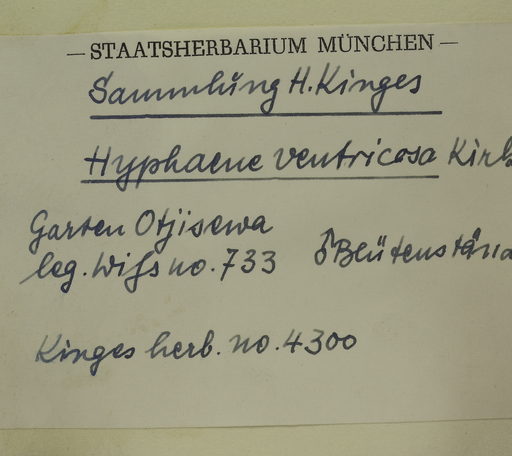 — STAATSHERBARIUM MÜNCHEN —
Sammlung H. Kinges
Hyphaene ventricosa Kirk
Garten Otjisewa
leg. Wiss no. 733 ♂ Blütenstän
Kinges herb. no. 4300